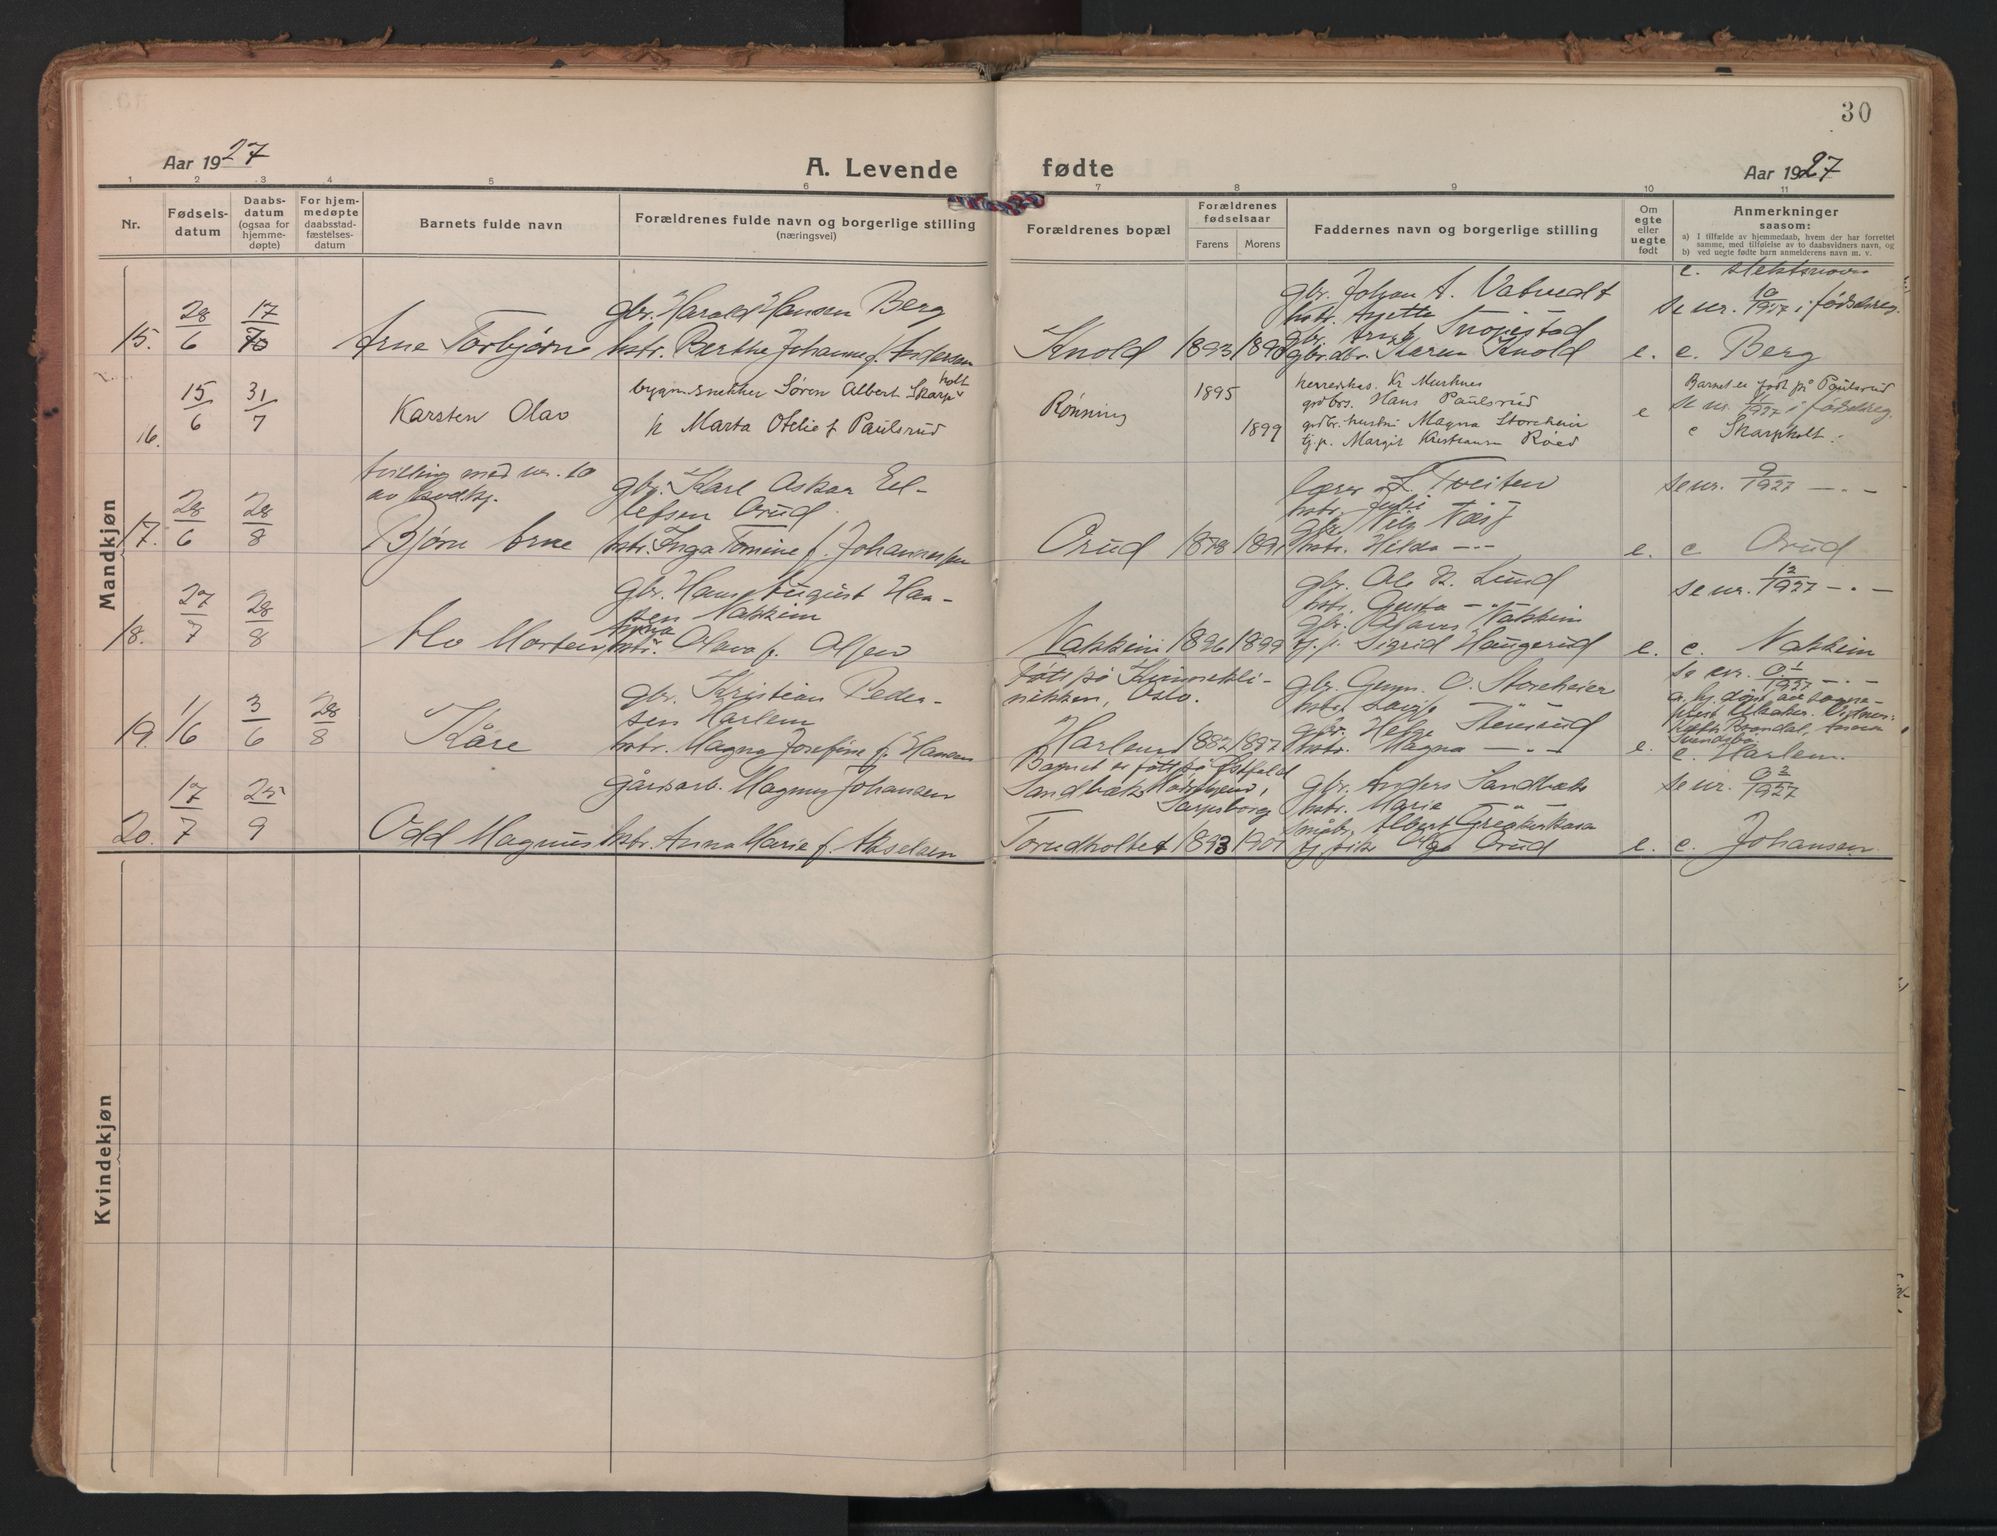 30
Aar 1927
A. Levende fødte
Aar 1927
1 2 3 4 5 6 7 8 9 10 11
Nr.
Fødsels-
datum
Daabs-
datum
(ogsaa for
hjemme-
døpte)
For hjem-
medøpte
daabsstad-
fæstelses-
datum
Barnets fulde navn
Forældrenes fulde navn og borgerlige stilling
(næringsvei)
Forældrenes bopæl
Forældrenes
fødselsaar
Farens Morens
Faddernes navn og borgerlige stilling
Om
egte
eller
uegte
født
Anmerkninger
saasom:
a) I tilfælde av hjemmedaab, hvem der har forrettet
samme, med tilføielse av to daabsvidners navn, og
b) ved uegte fødte barn anmelderens navn m. v.
Mandkjøn
e. slektsnavn
15.
28/6
17/7
Arne Torbjørn
gbr. Harald Hansen Berg
hstr. Berthe Johanne f. Andersen
Knold
1893
gbr. Johan A. Vatvedt
hstr. Agette
gbr. Arne Snopestad
gbr.dtr. Karen Knold
e.
se nr. 10/1927 i fødselsreg.
e. Berg
16.
15/6
31/7
Karsten Olav
bygn.snekker Søren Albert Skarpholt
h Marta Otelie f Paulsrud
Rønning
1895
1899
grdbrs. Hans Paulsrud
grdbr. hustru Magna Storeheier
tj.p. Margit Kristiansen Røed
e
Barnet er født på Paulsrud
se nr. 11/1927 i fødselsreg.
e Skarpholt
17.
28/6
28/8
tvilling med nr. 10
av kvdkj.
Bjørn Arne
gbr. Karl Oskar Eel-
lefsen Orud
hstr. Inga Tomine f. Johannessen
Orud
1878
lærer L. Tveiten
hstr. Juli
gbr. Nils Næs
hstr. Helda -"-
e.
se nr. 9/1927 -"-
e Orud
18.
27/7
28/8
Alv Morten
gbr. Hans August Han-
sen Nakkim
hstr. Olava f. Olsen
Nakkim
1896 1899
gbr. Ole K. Lund
hstr. Gusta -"-
gbr. Nakkim
tj. p. Sigrid Haugerud
e.
se nr. 12/1927 -"-
e. Nakkim
19.
1/6
3/6
28/8
Kåre
gbr. Kristian Peder-
sen Harlem
hstr. Magna Josefine f. Hansen
Født på Kvinnekli-
nikken, Oslo.
Harlem
1882 1887
gbr. Gunn. O. Storeheier
hstr.
gbr. Helge Stensrud
hstr. Magna -"-
e.
a. hj. døpt av sogne-
prest
e. Harlem.
20.
17/7
25/9
Odd Magnus
gårdsarb. Magnus Johansen
hstr. Anna Marie f. Akselsen
Barnet er født på Østfold
Sandbæk
Sarpsborg
Torudholtet
1893 1901
gbr. Anders Sandbæk
hstr. Marie
småbr. Albert Gregerskasa
Olga Orud
e.
e. Johansen
Kvindekjøn